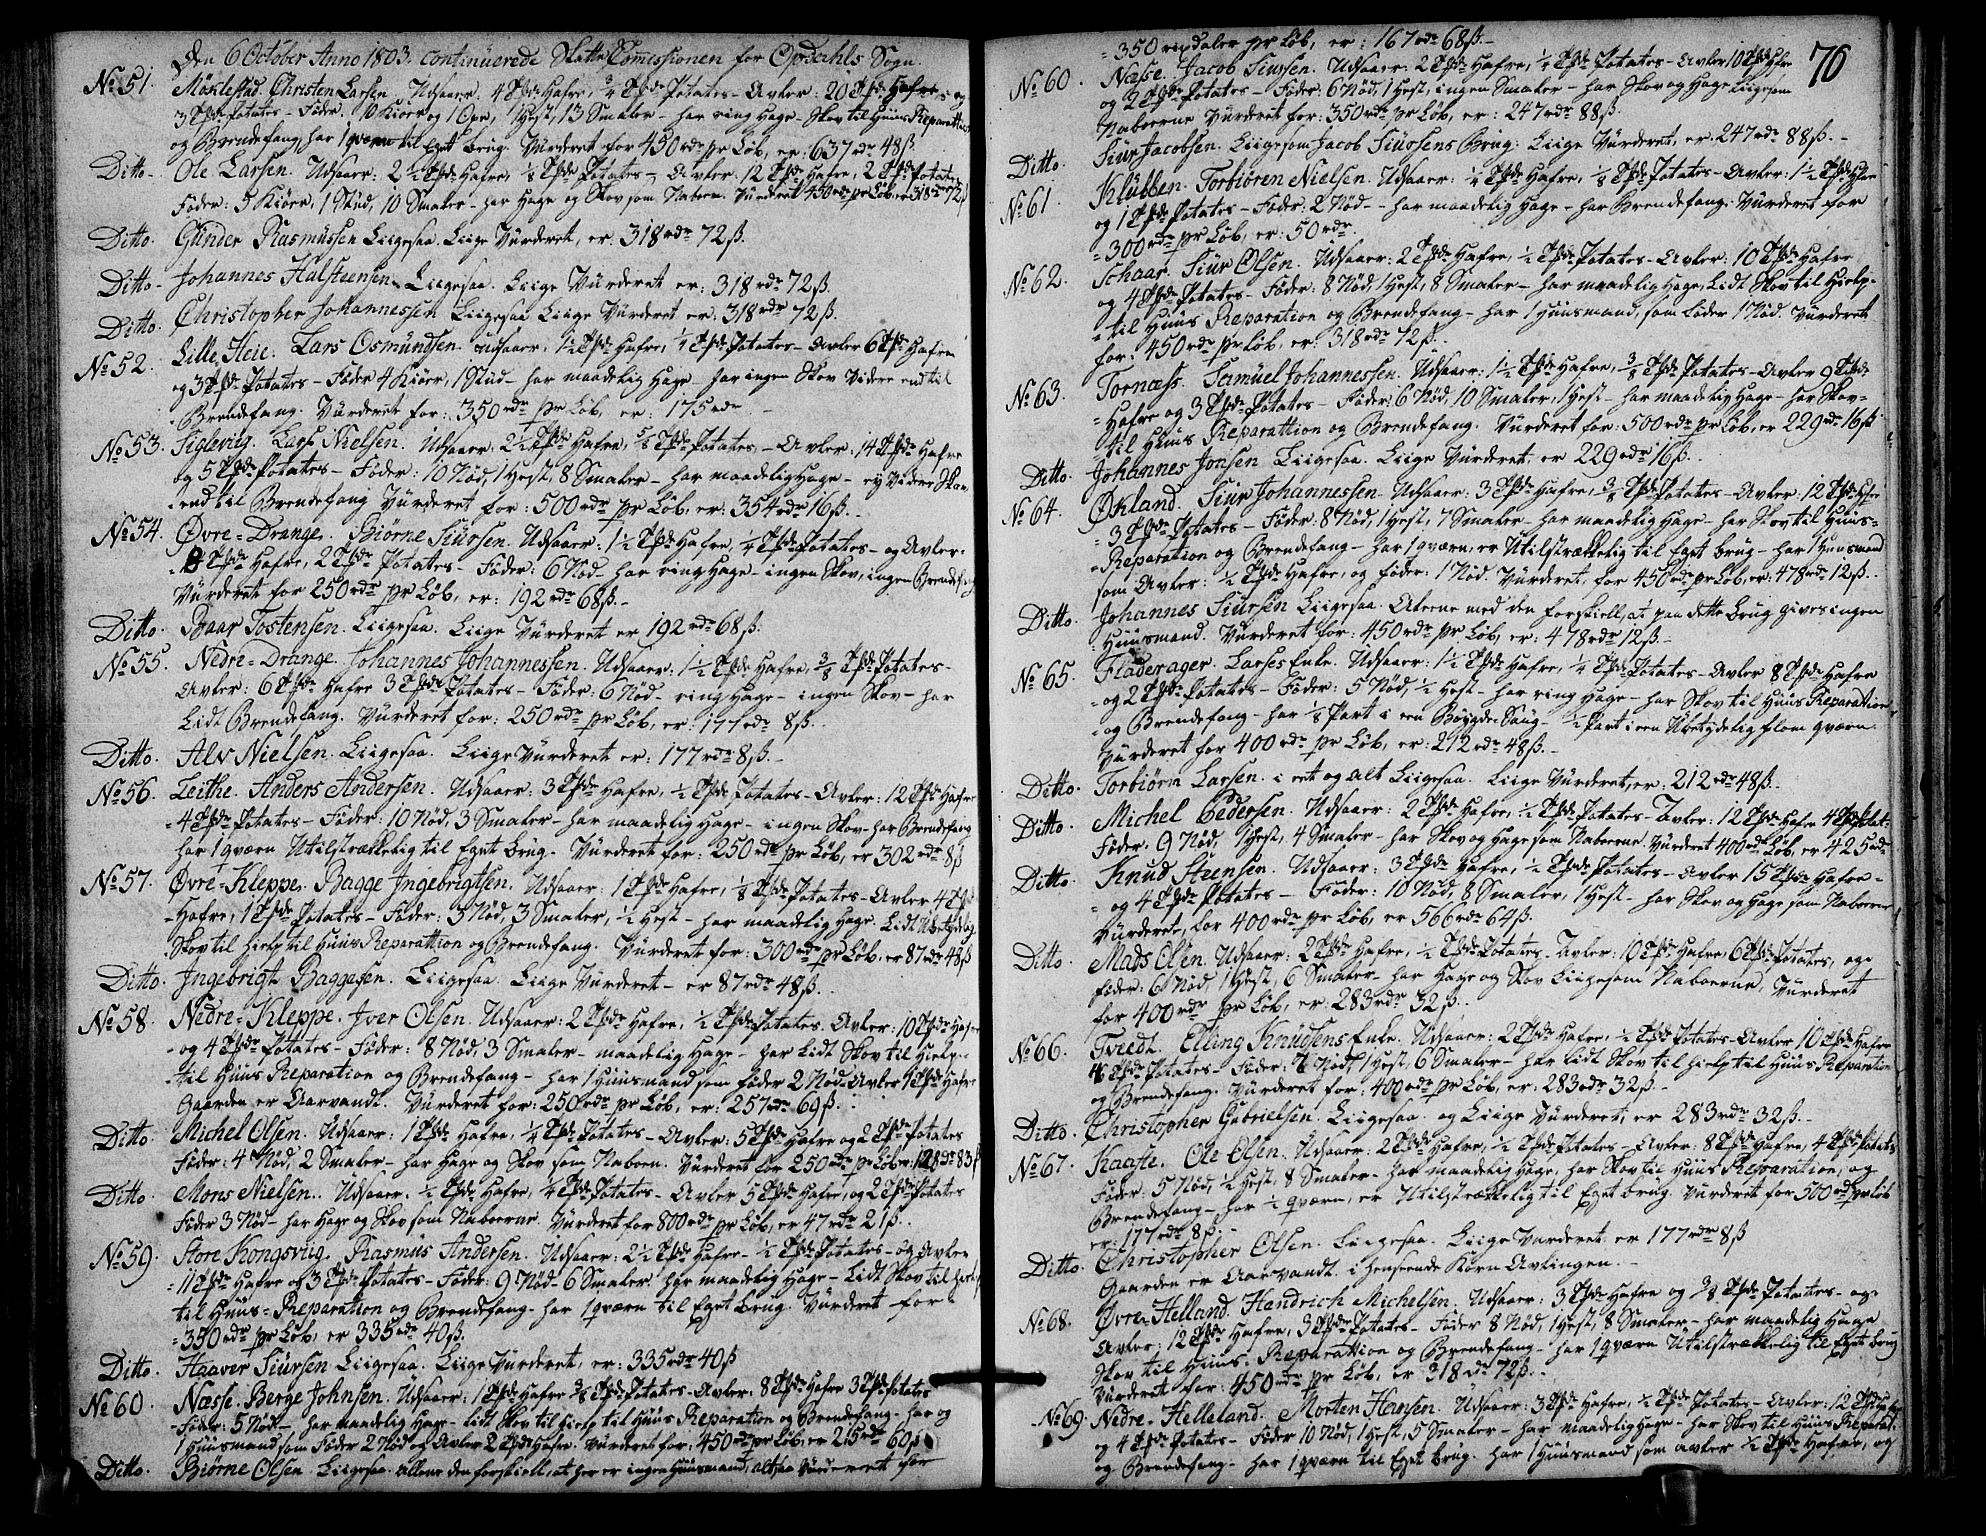 Den 6 October Anno 1803. continuerede Skatte Comissionen for Opdahls Sogn.
No 51. Møklestad. Christen Larsen. Udsaaer: 4 Tønder Hafre, 3/4 Tønde Potates - Avler: 20 Tønder Hafre og
3 Tønder Potates - Føder: 10 Kiør og 1 Oxe, 1 Hest, 13 Smaler - har ring Hage - Skov til Huus Reparation
og Brendefang, har 1 qværn til Eget brug. Vurderet for 450 rdr pr Løb, er: 637 rdr 48 ß.
Ditto. Ole Larsen. Udsaaer: 2 1/2 Tønde Hafre, 1/2 Tønde Potates - Avler: 12 Tønder Hafre, 2 Tønder Potates
Føder: 5 Kiør, 1 Stud, 10 Smaler - har Hage og Skov som Naboen. Vurderet 450 rdr pr Løb, er 318 rdr 72 ß
Ditto. Gunder Rasmussen Liigesaa. Liige Vurderet, er: 318 rdr 72 ß.
Ditto - Johannes Halsteensen - Liigesaa. Liige Vurderet er: 318 rdr 72 ß.
Ditto. Christopher Johannessen Liigesaa Liige Vurderet er: 318 rdr 72 ß.
No 52. Lille Heie. Lars Osmundsen. Udsaaer: 1 1/2 Tønde Hafre, 1/4 Tønde Potates - Avler 6 Tønder Hafre
og 3 Tønder Potates - Føder 4 Kiør, 1 Stud - har maadelig Hage - har ingen Skov Videre end til
Brendefang. Vurderet for: 350 rdr pr Løb, er: 175 rdr -
No 53. Siglevig. Lars Nielsen. Udsaaer: 2 1/2 Tønde Hafre, 5/8 Tønde Potates - Avler: 14 Tønder Hafre
og 5 Tønder Potates - Føder: 10 Nød, 1 Hest, 8 Smaler - har maadelig Hage - ey Videre Skov
end til Brendefang Vurderet for: 500 rdr pr Løb, er: 354 rdr 16 ß. -
No 54. Øvre-Drange. Biørne Siursen. Udsaaer: 1 1/2 Tønde Hafre, 1/4 Tønde Potates - og Avler:
8 Tønder Hafre, 2 Tønder Potates - Føder: 6 Nød - har ring Hage - ingen Skov, ingen Brendefang
Vurderet for 250 rdr pr Løb, er: 192 rdr 68 ß. -
Ditto. Baar Tostensen. Liigesaa. Liige Vurderet er 192 rdr 68 ß.
No 55. Nedre-Drange. Johannes Johannessen. Udsaaer: 1 1/2 Tønde Hafre, 3/8 Tønde Potates -
Avler: 6 Tønder Hafre 3 Tønder Potates - Føder: 6 Nød - ring Hage - ingen Skov - har
Lidt Brendefang. Vurderet for: 250 rdr pr Løb, er: 177 rdr 8 ß. -
Ditto. Alv Nielsen. Liigesaa. Liige Vurderet er: 177 rdr 8 ß. -
No 56. Leithe. Anders Andersen. Udsaaer: 3 Tønder Hafre, 1/2 Tønde Potates - Avler: 12 Tønder Hafre
4 Tønder Potates - Føder: 10 Nød, 3 Smaler - har maadelig Hage - ingen Skov - har Brendefang
har 1 qværn Utilstrækkelig til Eget brug - Vurderet for: 250 rdr pr Løb, er 302 rdr 8 ß
No 57. Øvre-Kleppe. Bagge Ingebrigtsen. Udsaaer: 1 Tønde Hafre, 1/8 Tønde Potates - Avler 4 Tønder
Hafre, 1 Tønde Potates - Føder: 5 Nød, 3 Smaler, 1/2 Hest - har maadelig Hage. Lidt Ubetydelig
Skov til hielp til Huus Reparattion og Brendefang. Vurderet for: 300 rdr pr Løb, er 87 rdr 48 ß
Ditto. Ingebrigt Baggesen. Liigesaa. Liige Vurderet - er 87 rdr 48 ß.
No 58. Nedre-Kleppe. Iver Olsen. Udsaaer: 2 Tønder Hafre, 1/2 Tønde Potates. Avler: 10 Tønder Hafre
og 4 Tønder Potates - Føder: 8 Nød, 3 Smaler - maadelig Hage - har Lidt Skov til Hielp
til Huus Reparation og Brendefang - har 1 Huusmand som føder 2 Nød - Avler 1 Tønde Hafre
Gaarden er Aarvandt. Vurderet for: 250 rdr pr Løb, er: 257 rdr 69 ß.
Ditto. Michel Olsen. Udsaaer: 1 Tønde Hafre, 1/4 Tønde Potates - Avler: 5 Tønder Hafre og 2 Tønder Potates
Føder: 4 Nød, 2 Smaler - har Hage og Skov som Naboen. Vurderet for 250 rdr pr Løb er 128 rdr 83 ß
Ditto. Mons Nielsen. Udsaaer. 1/2 Tønde Hafre, 1/4 Tønde Potates - Avler 5 Tønder Hafre, og 2 Tønder Potates
Føder 3 Nød - har Hage og Skov som Naboerne. Vurderet for 800 rdr pr Løb, er 47 rdr 21 ß.
No 59. Store Kongsvig. Rasmus Andersen. Udsaaer: 2 1/2 Tønde Hafre - 1/2 Tønde Potates - og Avler
11 Tønder Hafre og 3 Tønder Potates - Føder: 9 Nød - 6 Smaler. har maadelig Hage - Lidt Skov til hielp
til Huus-Reparation og Brendefang - har 1 qværn til Eget brug. Vurderet for
350 rdr pr Løb, er 335 rdr 40 ß.
Ditto. Haaver Siursen Liigesaa. Liige Vurderet, er: 335 rdr 40 ß
No 60. Næsse. Berge Johnsen. Udsaaer: 1 Tønde Hafre 3/8 Tønde Potates - Avler: 8 Tønder Hafre 3 Tønder Potates
Føder: 5 Nød - har maadelig Hage - lidt Skov til hielp til Huus Reparation og Brendefang - har og
1 Huusmand som Føder 2 Nød og Avler 2 Tønder Hafre. Vurderet for: 450 rdr pr Løb, er 215 rdr 60 ß
Ditto. Biørne Olsen. Liigesaa. allene den forskiell, at her er ingen Huusmand, altsaa Vurderet for
76
350 rixdaler pr Løb, er: 167 rdr 68 ß. -
No 60. Næsse. Jacob Siursen. Udsaaer: 2 Tønder Hafre, 1/4 Tønde Potates - Avler 10 Tønder Hafre
og 2 Tønder Potates - Føder: 6 Nød, 1 Hest, ingen Smaler - har Skov og Hage Liigesom
Naboerne Vurderet for: 350 rdr pr Løb, er: 247 rdr 88 ß.
Ditto. Siur Jacobsen. Liigesom Jacob Siursens Brug. Liige Vurderet, er: 247 rdr 88 ß. -
No 61. Klubben. Torbiøren Nielsen. Udsaaer: 1/4 Tønde Hafre, 1/8 Tønde Potates - Avler: 1 1/2 Tønde Hafre
og 1 Tønde Potates - Føder: 2 Nød - har maadelig Hage - har Brendefang. Vurderet for
300 rdr pr Løb, er: 50 rdr.
No 62. Schaar. Siur Olsen. Udsaaer: 2 Tønder Hafre, 1/2 Tønde Potates - Avler: 10 Tønder Hafre
og 4 Tønder Potates - Føder: 8 Nød, 1 Hest, 8 Smaler - har maadelig Hage, Lidt Skov til Hielp
til Huus Reparation og Brendefang - har 1 Huusmand, som føder 1 Nød. Vurderet
for: 450 rdr pr Løb, er: 318 rdr 72 ß.
No 63. Tornæss. Samuel Johannessen. Udsaaer: 1 1/2 Tønde Hafre, 3/8 Tønde Potates - Avler 9 Tønder
Hafre og 3 Tønder Potates - Føder: 6 Nød, 10 Smaler, 1 Hest - har maadelig Hage - har Skov
til Huus Reparattion og Brendefang. Vurderet for: 500 rdr pr Løb, er 229 rdr 16 ß
Ditto. Johannes Jonsen Liigesaa. Liige Vurderet, er 229 rdr 16 ß.
No 64. Økland. Siur Johannessen. Udsaaer: 3 Tønder Hafre, 3/8 Tønde Potates - Avler 12 Tønder Hafre
3 Tønder Potates - Føder: 8 Nød, 1 Hest, 7 Smaler - har maadelig Hage - har Skov til Huus-
Reparation og Brendefang - har 1 qværn, er Utilstrækkelig til Eget brug - har 1 Huusmand
som Avler: 1/2 Tønde Hafre, og føder: 1 Nød. Vurderet, for 450 rdr pr Løb, er: 478 rdr 12 ß.
Ditto. Johannes Siursen Liigesaa. Alene med den forskiell, at paa dette brug gives ingen
Huusmand. Vurderet for: 450 rdr pr Løb, er: 478 rdr 12 ß. -
No 65. Fladerager. Larses Enke. Udsaaer: 1 1/2 Tønde Hafre, 1/4 Tønde Potates - Avler 8 Tønder Hafre
og 2 Tønder Potates - Føder: 5 Nød, 1/2 Hest - har ring Hage - har Skov til Huus Reparation
og Brendefang - har 1/8 Part i een Bøygde Saug - 1/2 Part i een Ubetydelig flom qværn
Vurderet for 400 rdr pr Løb, er: 212 rdr 48 ß. -
Ditto. Torbiørn Larsen. i eet og alt Liigesaa. Liige Vurderet, er: 212 rdr 48 ß. -
Ditto. Michel Pedersen. Udsaaer: 2 Tønder Hafre, 1/2 Tønde Potates - Avler: 12 Tønder Hafre 4 Tønder Potat-
Føder: 9 Nød, 1 Hest, 4 Smaler - har Skov og Hage som Naboerne. Vurderet 400 rdr Løb, er 425 rdr
Ditto. Knud Steensen. Udsaaer: 3 Tønder Hafre, 1/2 Tønde Potates - Avler 15 Tønder Hafre -
og 4 Tønder Potates - Føder: 10 Nød, 8 Smaler, 1 Hest - har Skov og Hage som Naboerne
Vurderet, for 400 rdr pr Løb, er 566 rdr 64 ß.
Ditto. Mads Olsen. Udsaaer: 2 Tønder Hafre, 1/2 Tønde Potates - Avler: 10 Tønder Hafre, 6 Tønder Potates, og
føder: 6 Nød, 1 Hest, 6 Smaler - har Hage og Skov Liigesom Naboerne, Vurderet
for 400 rdr pr Løb, er: 283 rdr 32 ß.
No 66. Tvedt. Elling Knudsens Enke. Udsaaer: 2 Tønder Hafre, 1/2 Tønde Potates - Avler 10 Tønder Hafre
4 Tønder Potates - Føder: Nød, 1 Hest, 6 Smaler - har Lidt Skov til hielp til Huus Reparation
og Brendefang. Vurderet for: 400 rdr pr Løb, er: 283 rdr 32 ß. -
Ditto. Christopher Gabrielsen. Liigesaa. og Liige Vurderet, er 283 rdr 32 ß. -
No 67. Kaaste. Ole Olsen. Udsaaer: 2 Tønder Hafre, 1/2 Tønde Potates - Avler: 8 Tønder Hafre, 4 Tønder Potates
Føder: 5 Nød, 1/2 Hest, 8 Smaler - har maadelig Hage, har Skov til Huus Reparation, og
Brendefang - har 1/2 qværn, er Utilstrækkelig til Eget brug. Vurderet for 500 rdr pr Løb
er: 177 rdr 8 ß. -
Ditto. Christopher Olsen. Liigesaa. Liige Vurderet er 177 rdr 8 ß
Gaarden er Aarvandt i henseende Korn Avlingen.
No 68. Øvre-Helland. Handrich Michelsen. Udsaaer: 3 Tønder Hafre og 3/8 Tønde Potates - og
Avler: 12 Tønder Hafre, 3 Tønder Potates - Føder 8 Nød, 1 Hest, 8 Smaler - har maadelig Haage
Skov til Huus-Reparattion og Brendefang - har 1 qværn Utilstrækkelig til Eget brug
Vurderet for: 450 rdr pr Løb, er 318 rdr 72 ß. -
No 69. Nedre-Helleland. Morten Hansen. Udsaaer: 3 Tønder Hafre, 1/2 Tønde Potates - Avler: 12 Tønder Hafre
og 4 Tønder Potates - Føder 10 Nød, 1 Hest, 5 Smaler - har maadelig Hage - har Skov til Huus Reparat-
og Brendefang - har 1 qværn til Eget brug. har 1 Huusmand som avler 1/2 Tønde Hafre, og